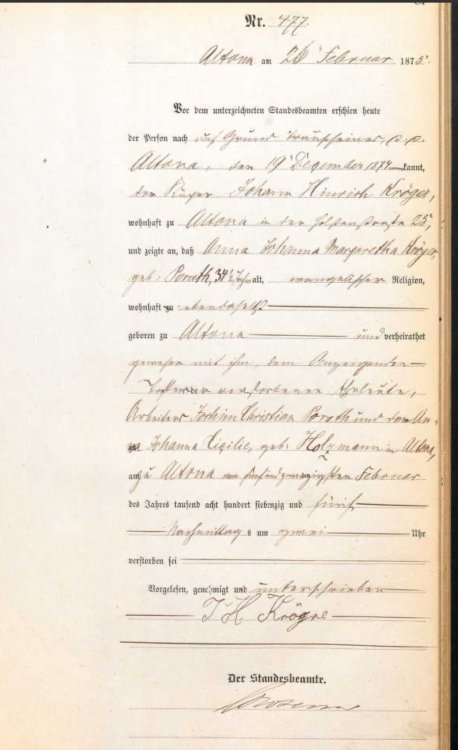 Nr. 477.
Altona am 26 Februar 1875.
Vor dem unterzeichneten Standesbeamten erschien heute
der Person nach auf Grund Trauscheines d. d.
Altona, den 19 Dezember 1874 kannt,
der Johann Hinrich Kröger,
wohnhaft zu Altona in der 25,
und zeigte an, daß Anna Johanna Margaretha Kröger,
geb. Porath, 34 Jahr alt, evangelischer Religion,
wohnhaft zu ebendaselbst
geboren zu Altona und verheirathet
gewesen mit ihm, dem Anzeigenden
Tochter der verstorbenen Eheleute,
Arbeiters Jochim Christian Porath und
Johanna geb. Holzmann in Altona,
zu Altona am Februar
des Jahres tausend acht hundert siebenzig und fünf
Nachmittags um zwei Uhr
verstorben sei
Vorgelesen, genehmigt und unterschrieben
J H Kröger
Der Standesbeamte.